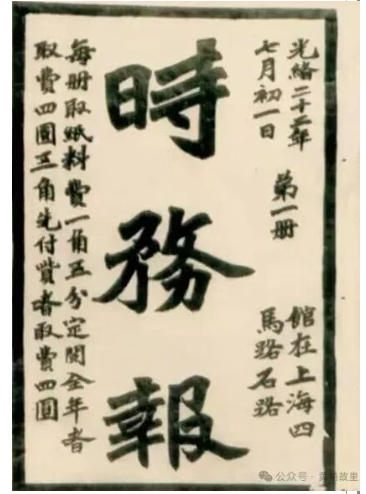 光緒二十二年
七月初一日
第一册
館在上海四
馬路石路
時務報
每册取紙料費一角五分定閱全年者
取費四圓三角先付費者取費四圓
公众号 · 故里